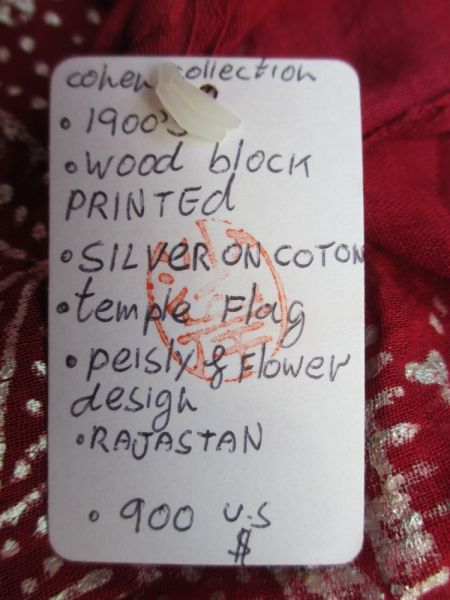 cohen collection
• 1900's
• wood block
PRINTED
• SILVER ON COTON
• temple Flag
• peisly & Flower
design
• RAJASTAN
• 900 U.S
$